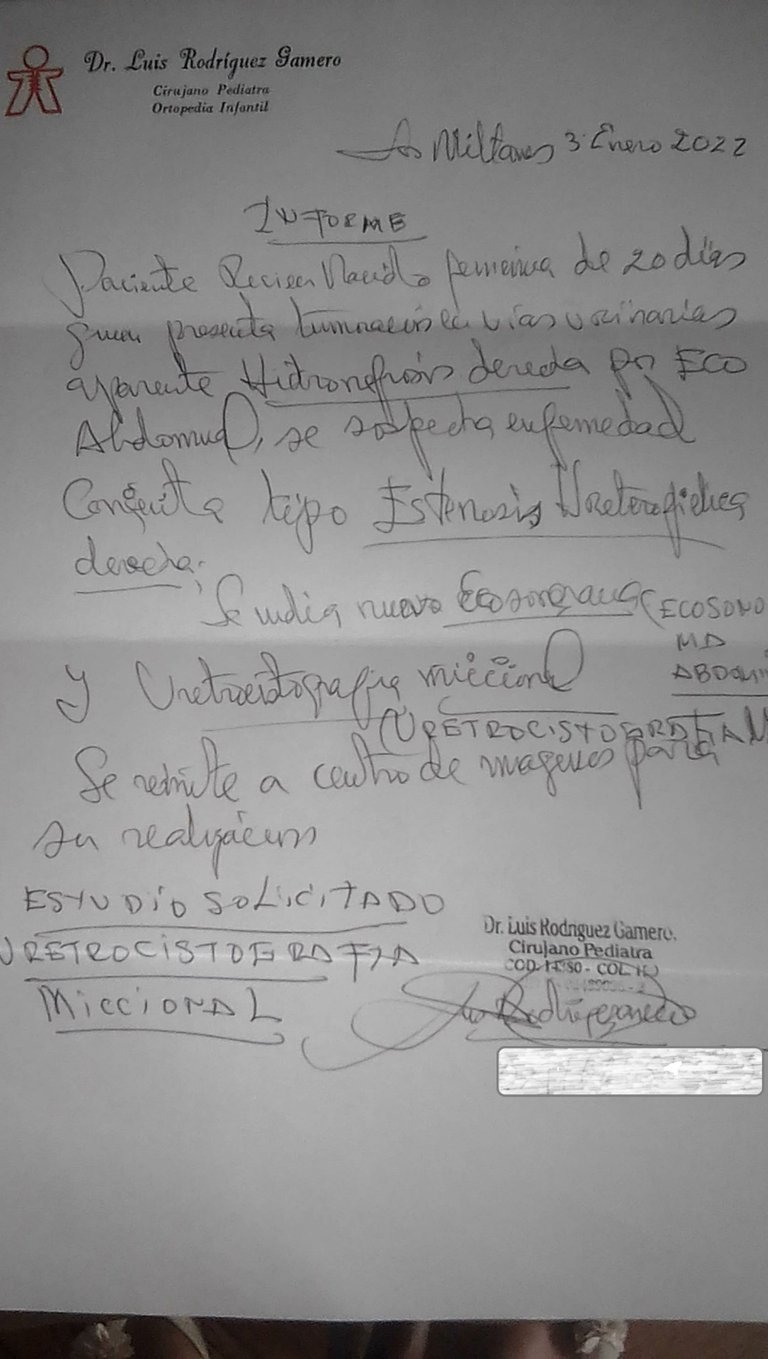 Dr. Luis Rodríguez Gamero
Cirujano Pediatra
Ortopedia Infantil
3 Enero 2022
INFORME
Paciente Recien Nacido femenina de 20 días
quien presenta tumoración en vias urinarias
aparente Hidronefrosis derecha por ECO
Abdominal, se sospecha enfermedad
Congenita tipo Estenosis
derecha.
Se indica nuevo Ecosonograma (ECOSONO
MA
ABDOMI
y Uretrocistografia miccional
(URETROCISTOGRAFIA M
Se remite a centro de imagenes para
su realización
ESTUDIO SOLICITADO
URETROCISTOGRAFIA
MICCIONAL
Dr. Luis Rodriguez Gamero.
Cirujano Pediatra